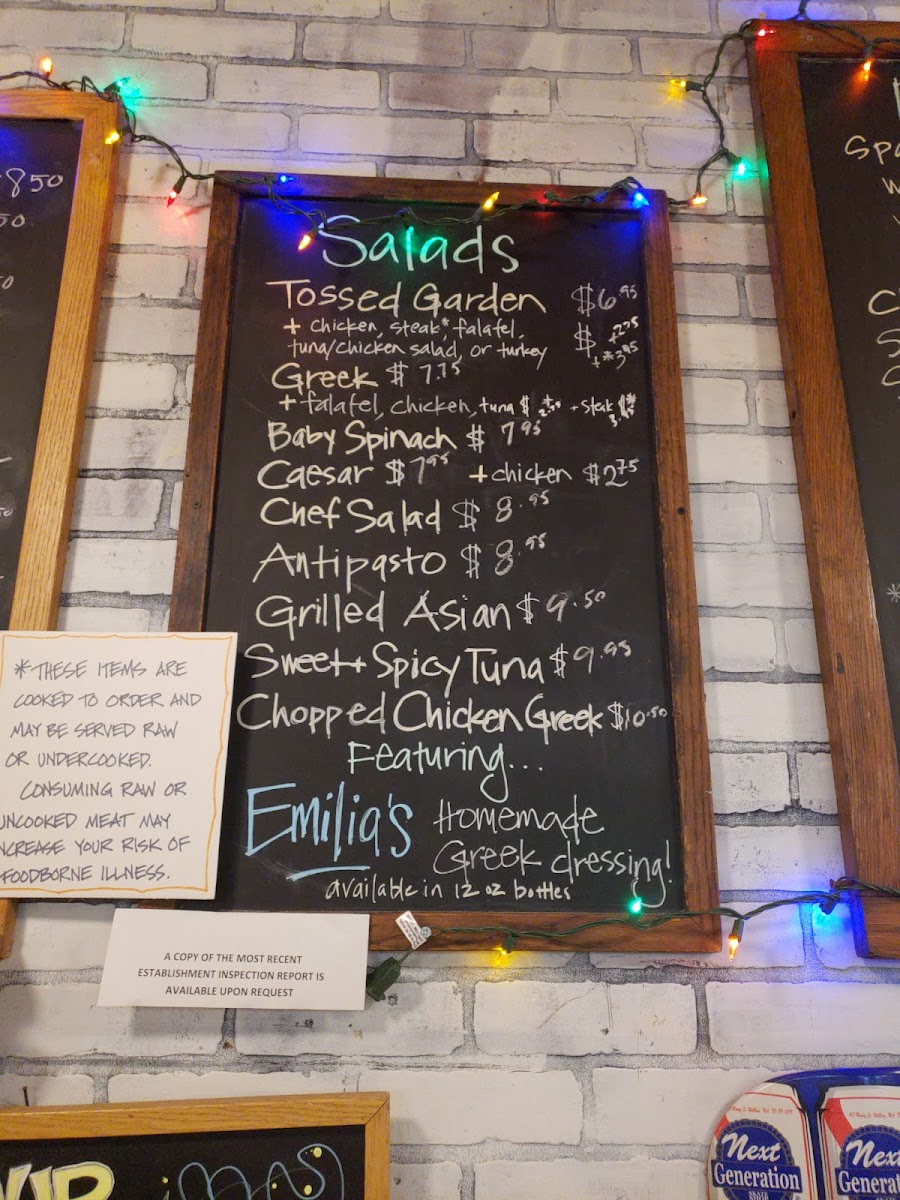 850
50
Salads
Tossed Garden $6.95
+ chicken, steak*, falafel, $ +2.75
tuna/chicken salad, or turkey +*3.95
Greek $7.75
+ falafel, chicken, tuna $ + steak $*
Baby Spinach $7.95
Caesar $7.95 + chicken $2.75
Chef Salad $8.95
Antipasto $8.95
Grilled Asian $9.50
Sweet + Spicy Tuna $9.95
Chopped Chicken Greek $10.50
Featuring...
Emilia's Homemade
Greek dressing!
available in 12 oz bottles
*THESE ITEMS ARE
COOKED TO ORDER AND
MAY BE SERVED RAW
OR UNDERCOOKED.
CONSUMING RAW OR
UNCOOKED MEAT MAY
INCREASE YOUR RISK OF
FOODBORNE ILLNESS.
A COPY OF THE MOST RECENT
ESTABLISHMENT INSPECTION REPORT IS
AVAILABLE UPON REQUEST
Spa
Next
Generation
Nex
Genera